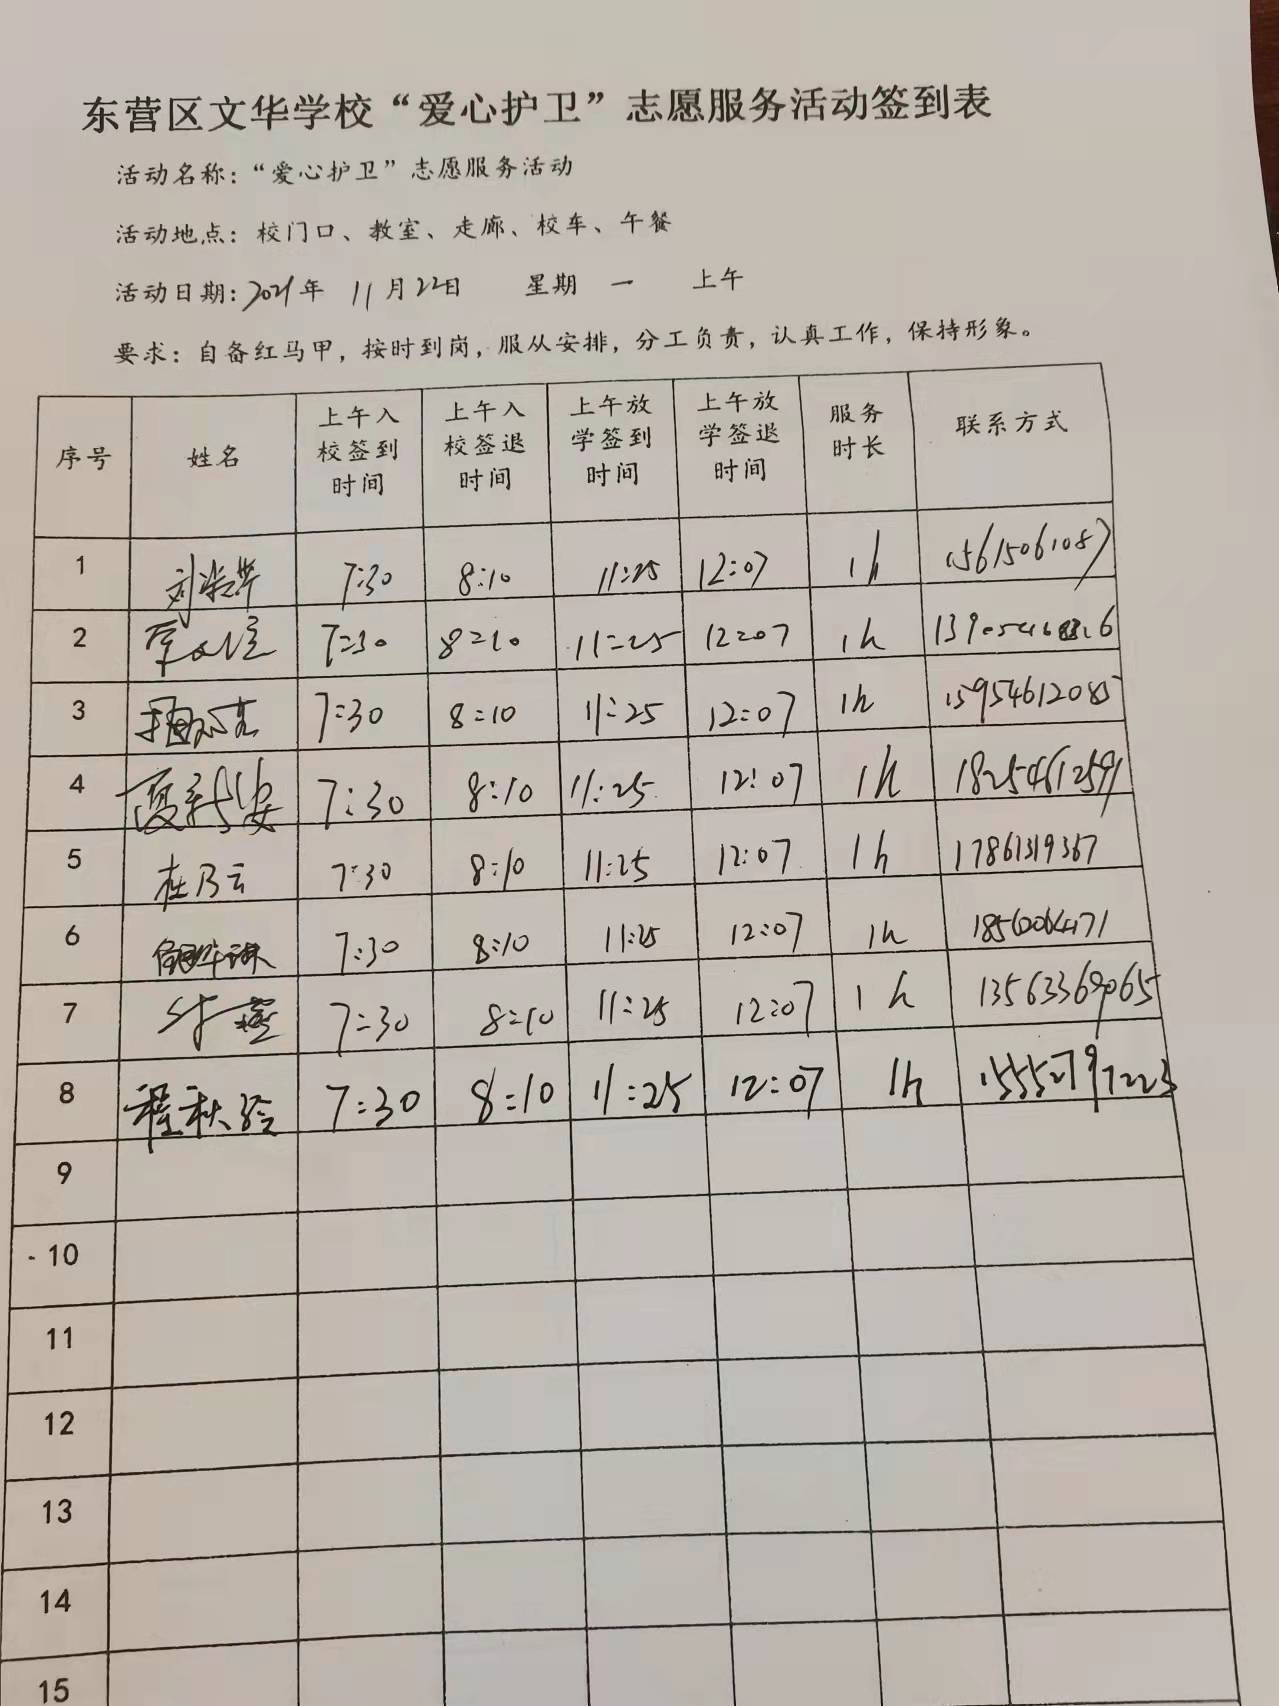 东营区文华学校“爱心护卫”志愿服务活动签到表
活动名称：“爱心护卫”志愿服务活动
活动地点：校门口、教室、走廊、校车、午餐
活动日期：2021年 11月22日 星期 一 上午
要求：自备红马甲，按时到岗，服从安排，分工负责，认真工作，保持形象。
序号 姓名 上午入校签到时间 上午入校签退时间 上午放学签到时间 上午放学签退时间 服务时长 联系方式
1 7:30 8:10 11:25 12:07 1h 15615061087
2 7:30 8:10 11:25 12:07 1h
3 7:30 8:10 11:25 12:07 1h 15954612085
4 7:30 8:10 11:25 12:07 1h 18254612591
5 杜乃云 7:30 8:10 11:25 12:07 1h 17861319367
6 7:30 8:10 11:25 12:07 1h
7 7:30 8:10 11:25 12:07 1h 13563369065
8 程秋玲 7:30 8:10 11:25 12:07 1h 15552797223
9
10
11
12
13
14
15